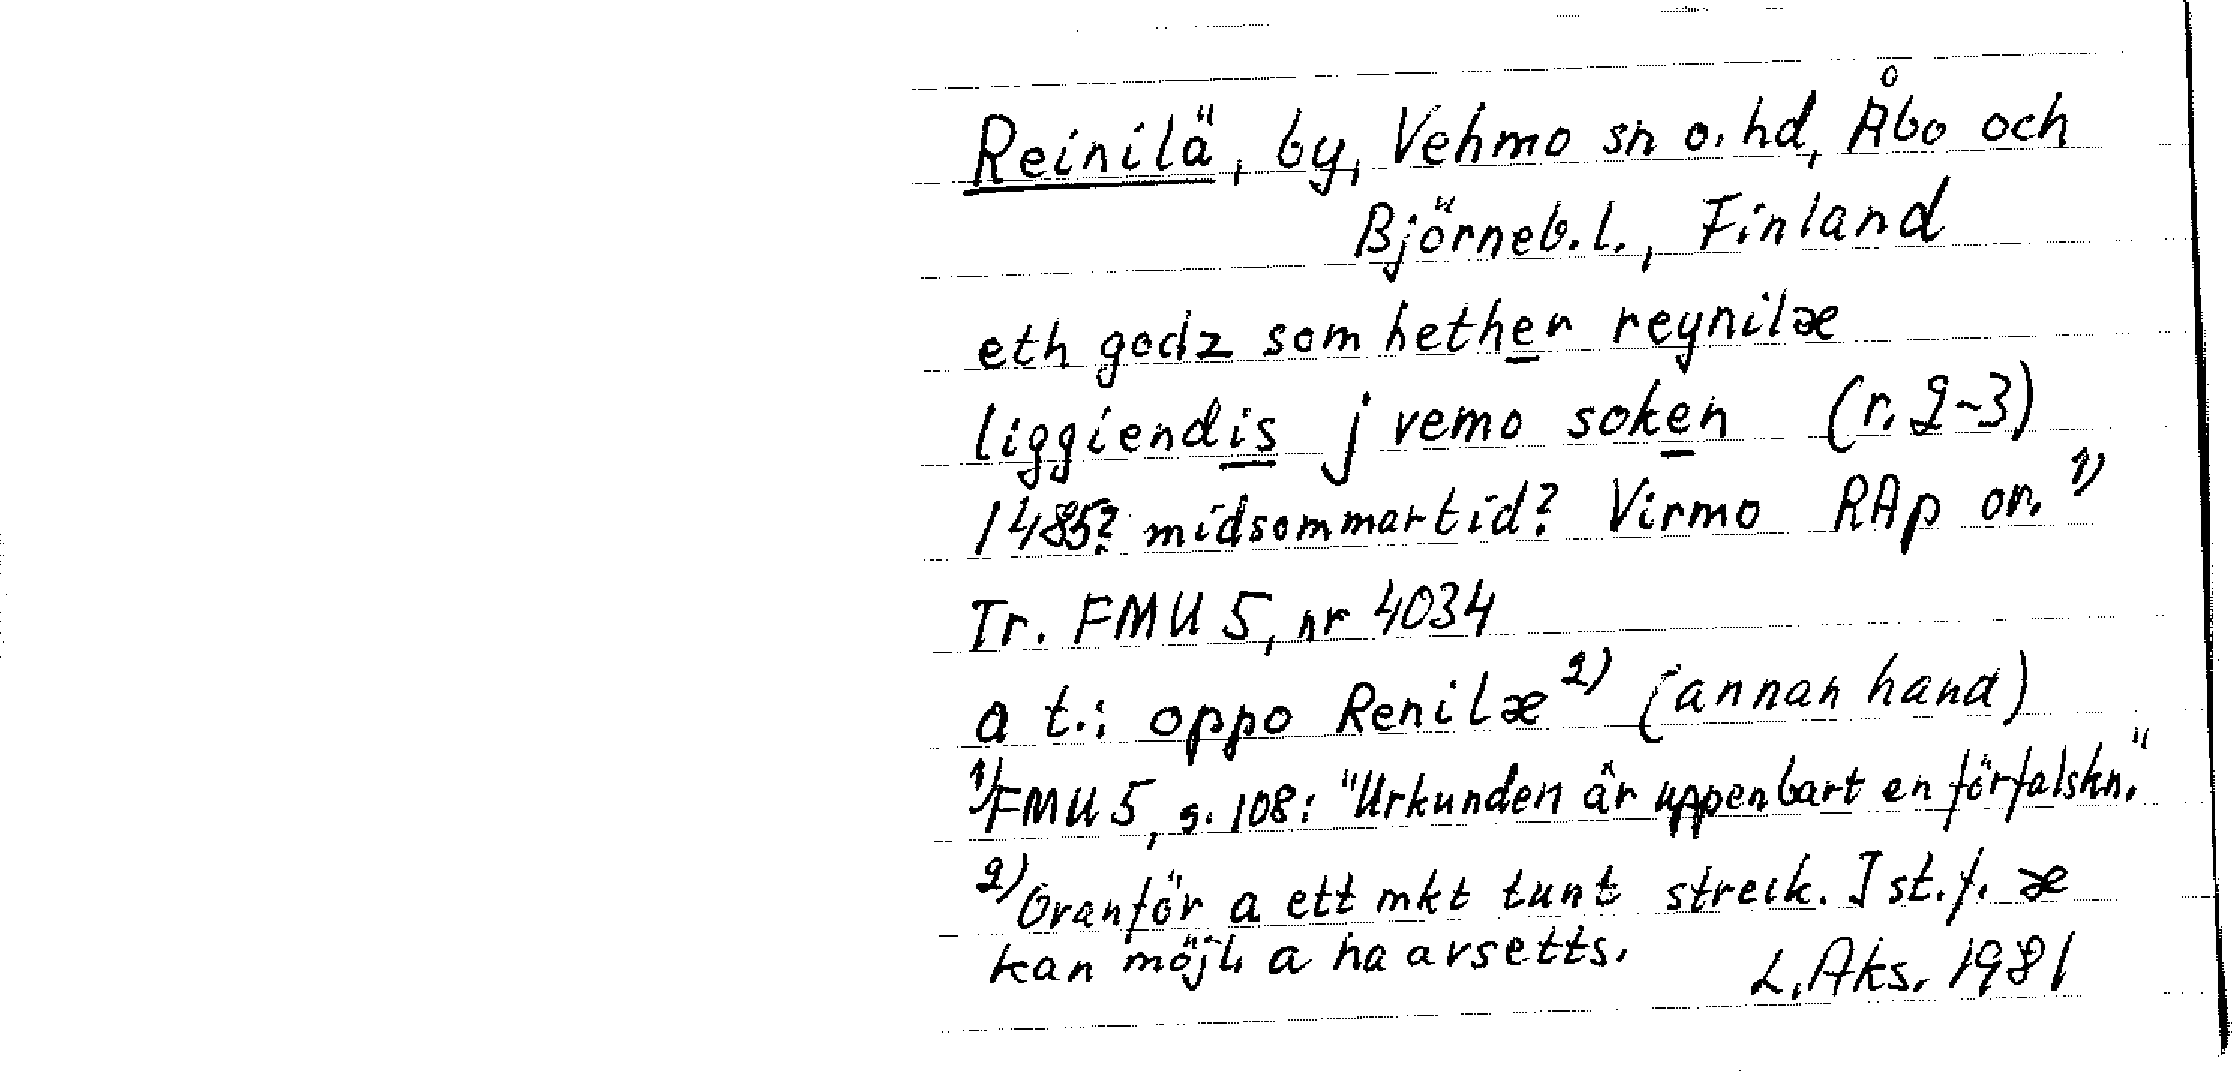 Reinilä, by, Vehmo sn o. hd, Åbo och
Björneb.l., Finland
eth godz som hether reynilæ
liggiendis j vemo soken (r. 2-3)
1485? midsommartid? Virmo RAp or. 1)
Tr. FMU 5, nr 4034
a t.: oppo Renilæ 2) (annan hand)
1) FMU 5, s. 108: "Urkunden är uppenbart en förfalskn."
2) Ovanför a ett mkt tunt streck. I st. f. æ
kan möjl. a ha avsetts.
L. Aks. 1981